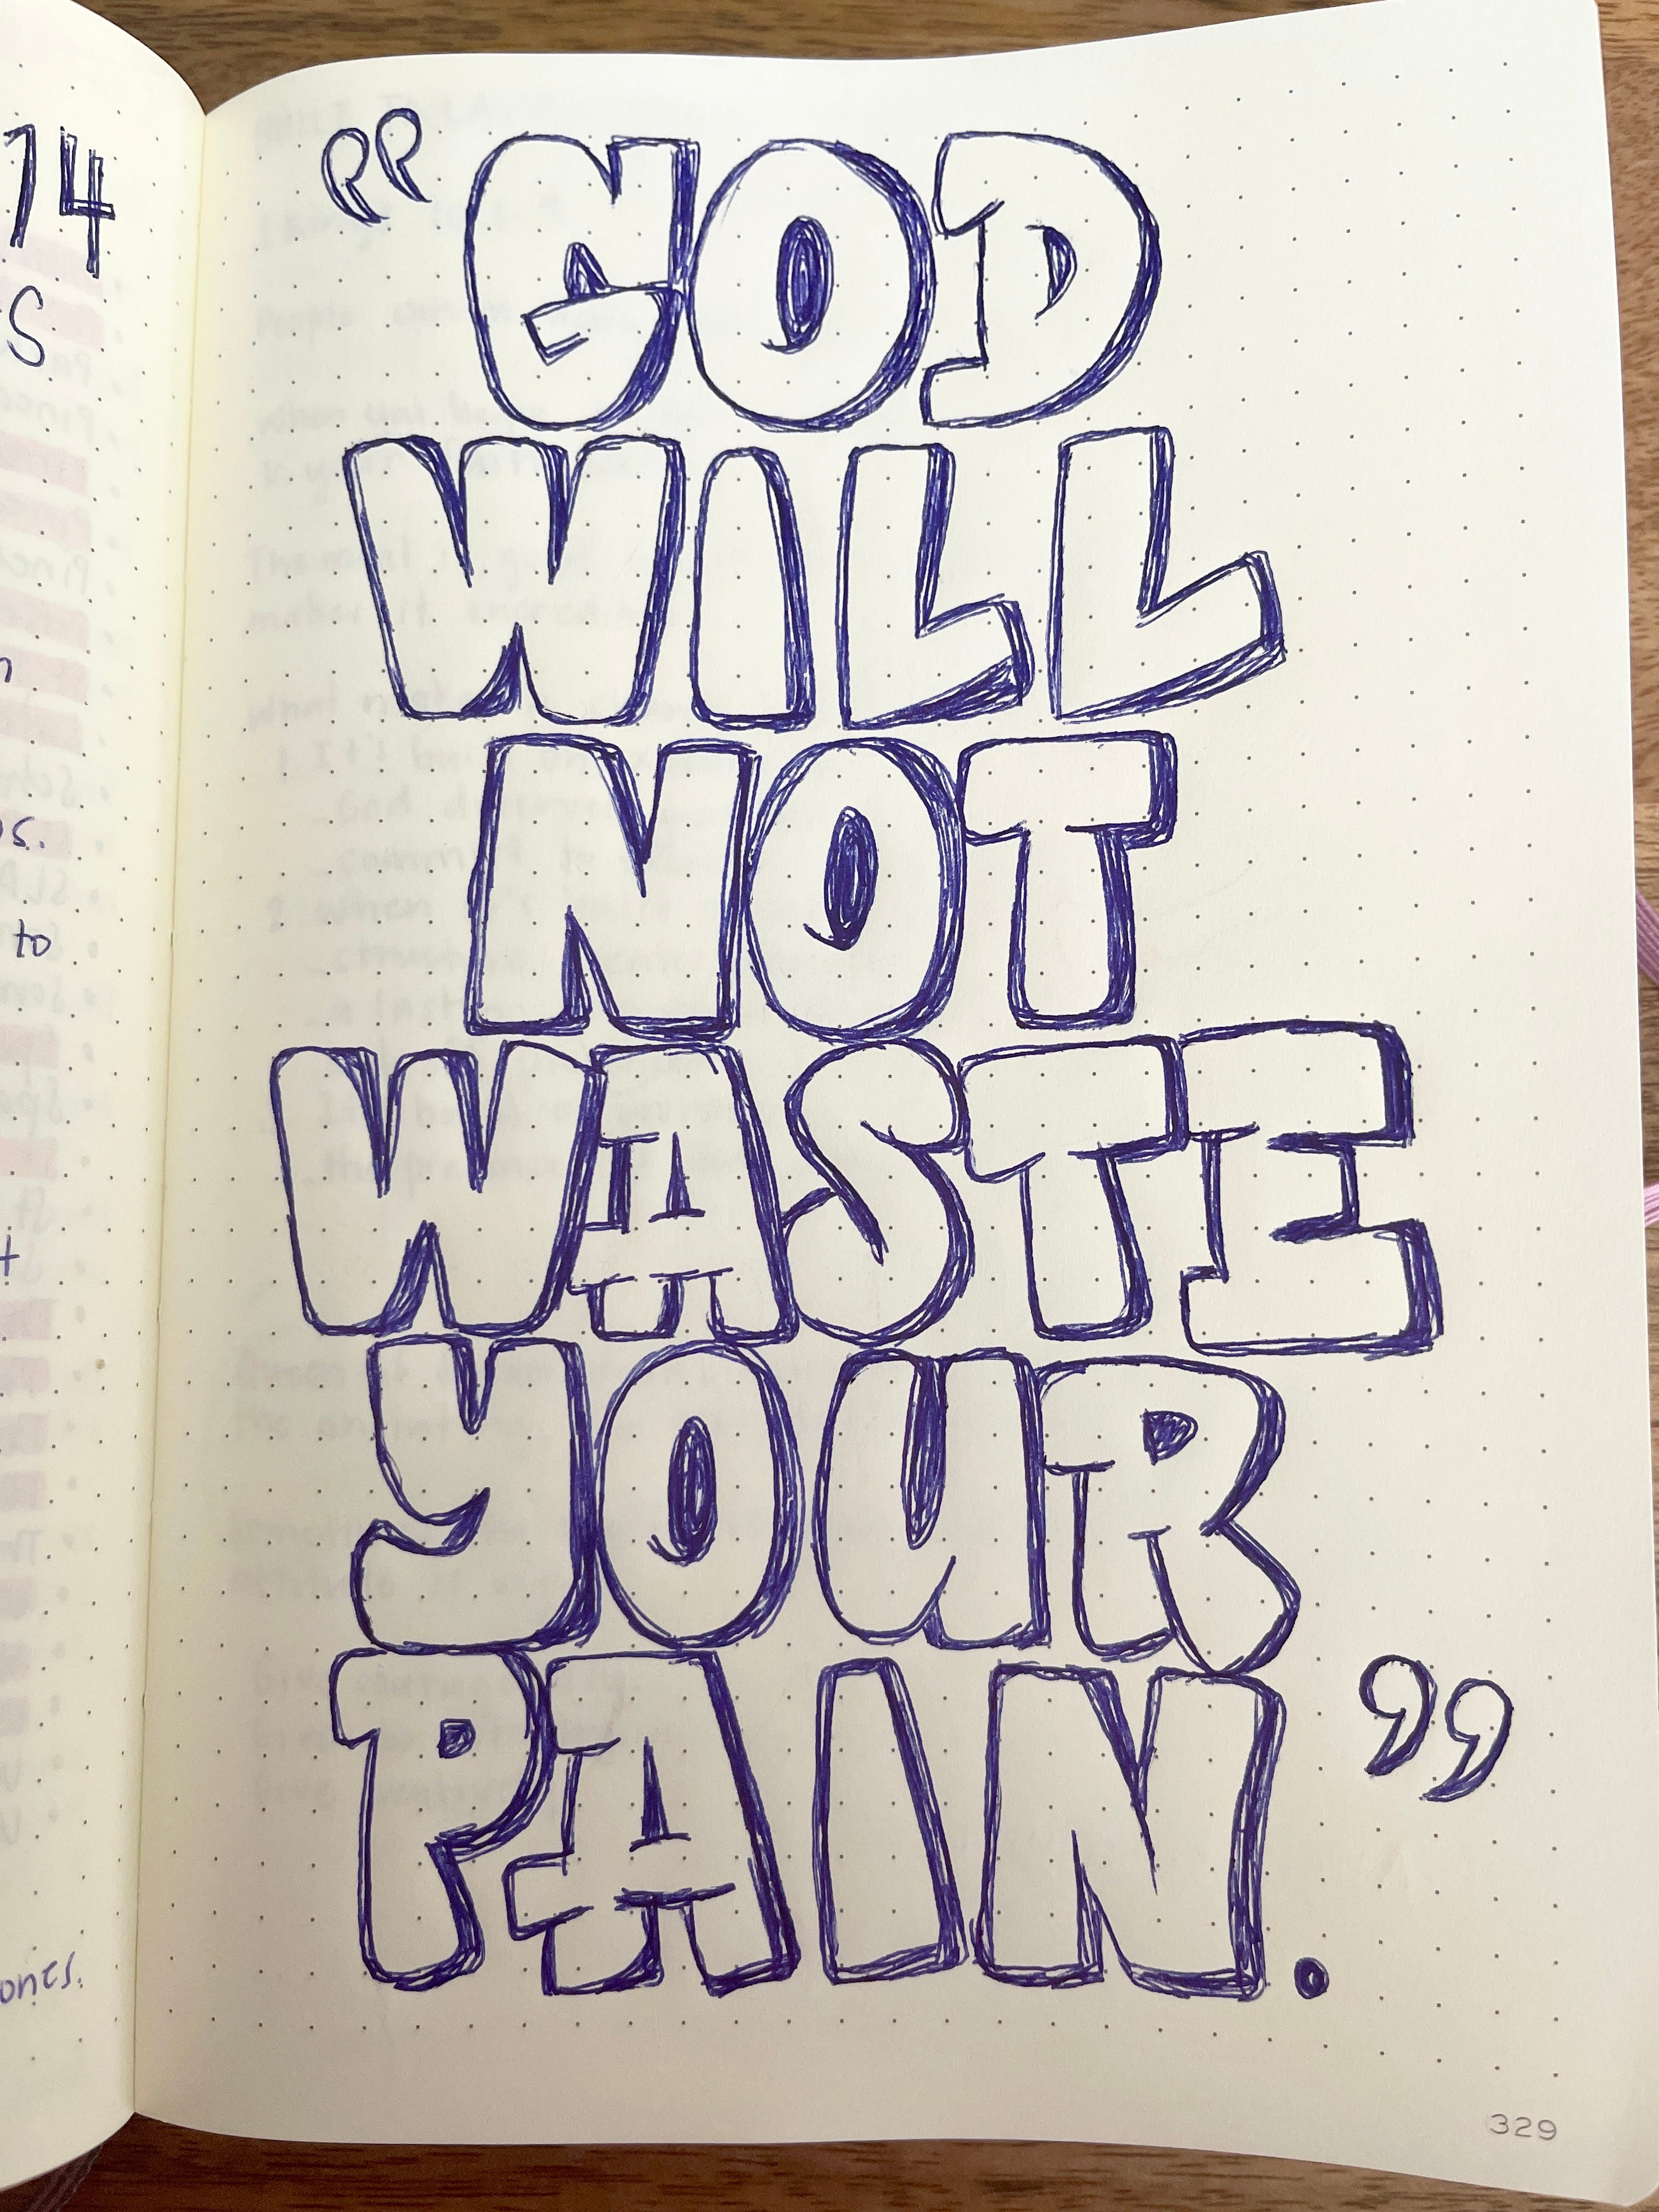 14
S
s.
to
ones.
“GOD
WILL
NOT
WASTE
YOUR
PAIN.”
329